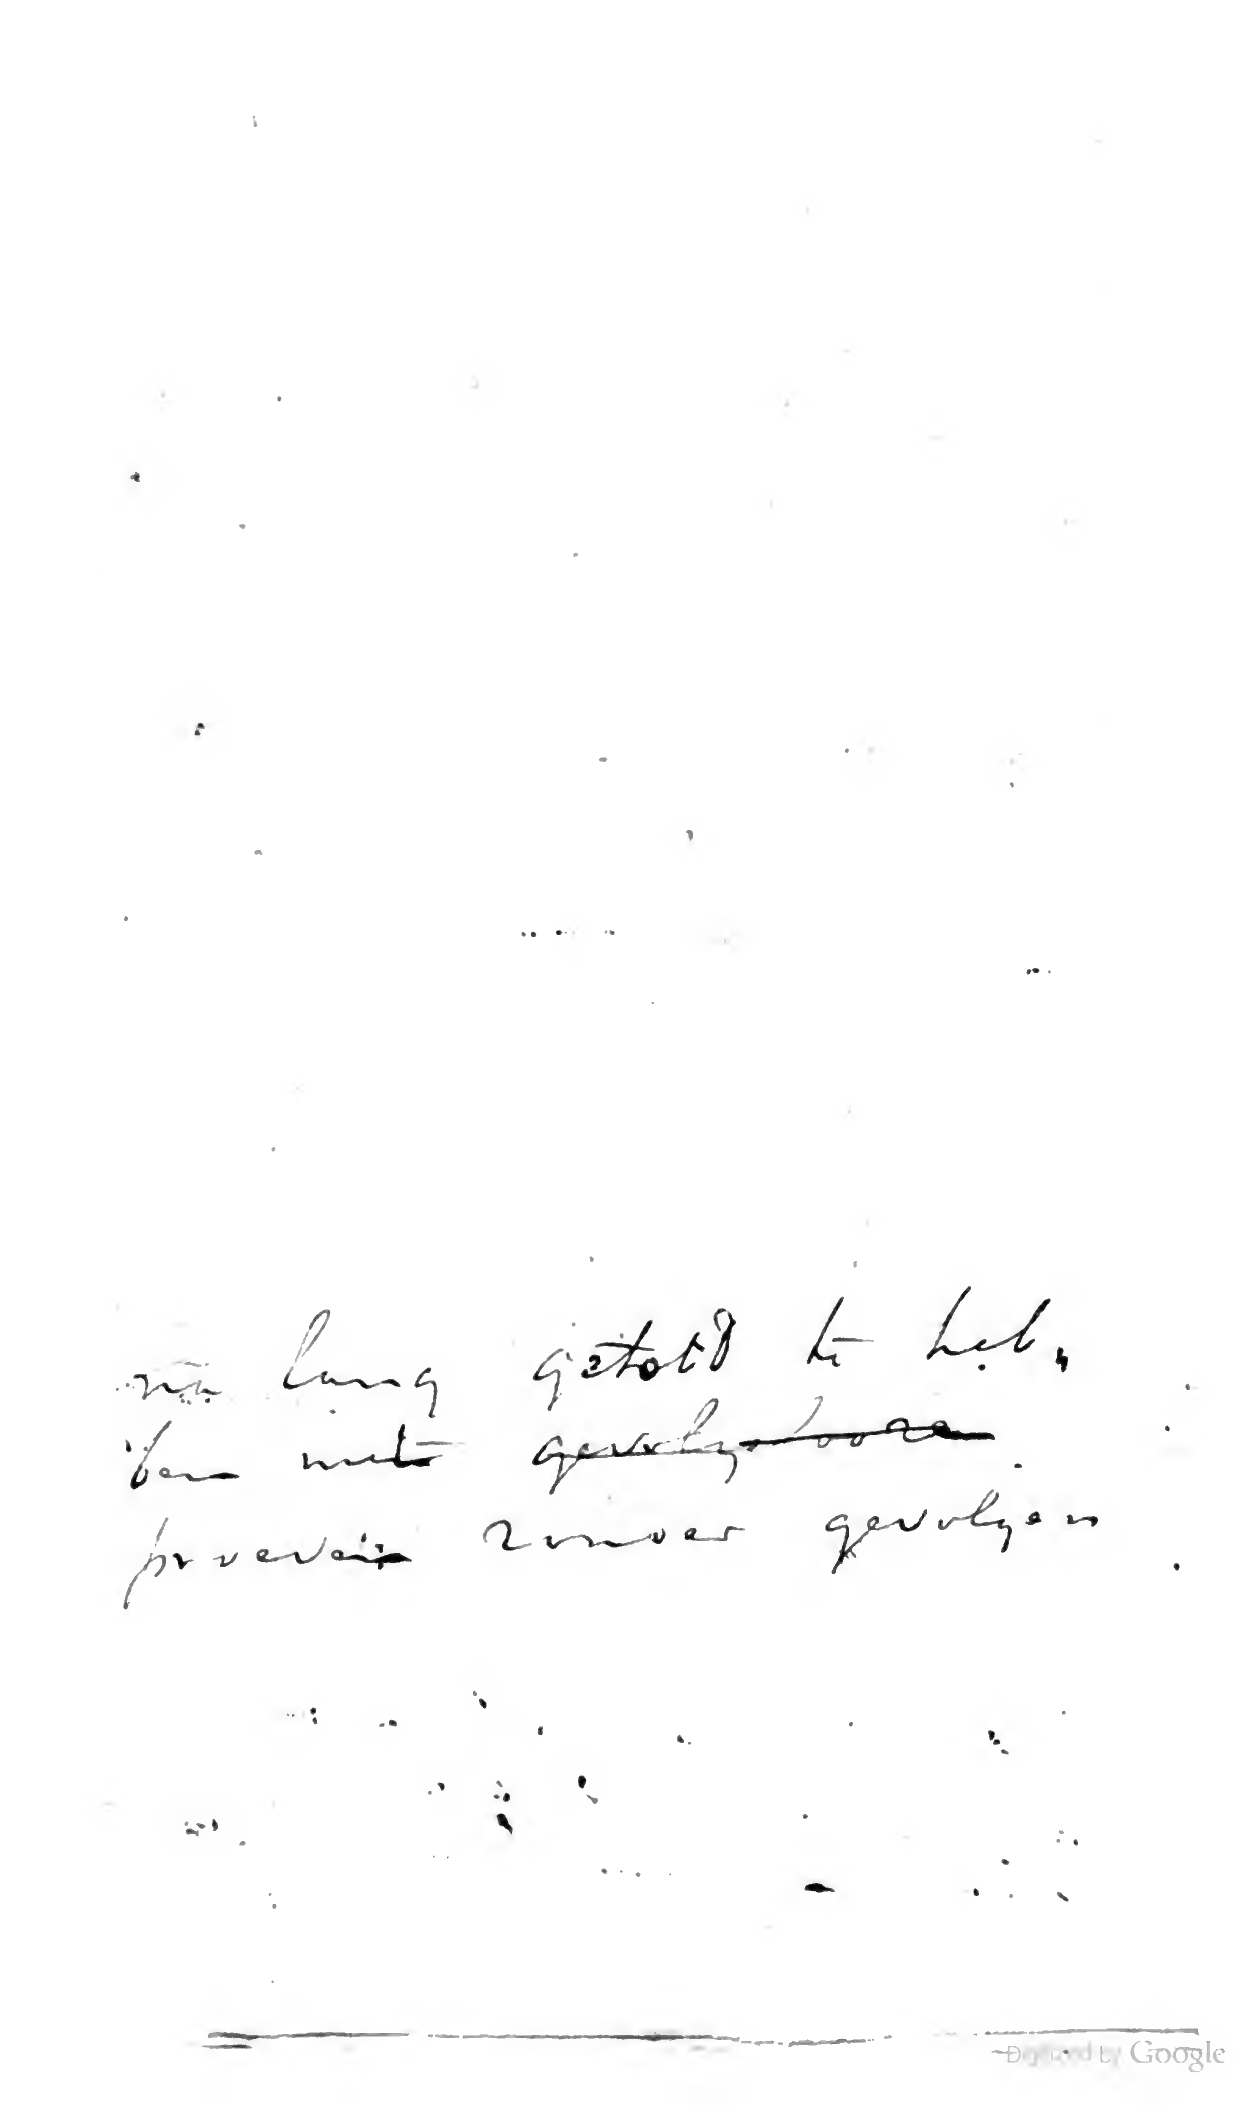 na lang getobd te heb„
ben met gevolgloozen
proeven zonder gevolgen
Digitized by Google